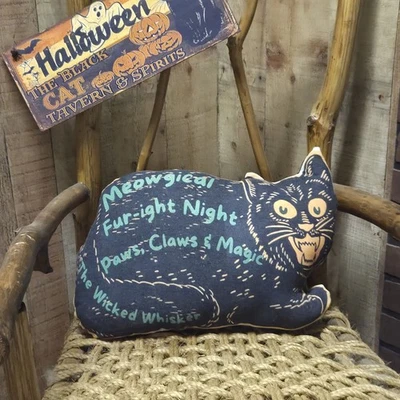 Halloween
THE BLACK
CAT
TAVERN & SPIRITS
Meowgical
Fur-ight Night
Paws, Claws & Magic
The Wicked Whisker